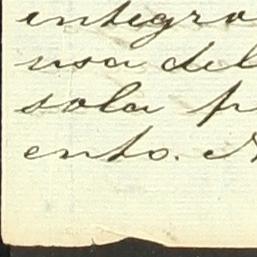 integro
usa del
sola fr
ento. A